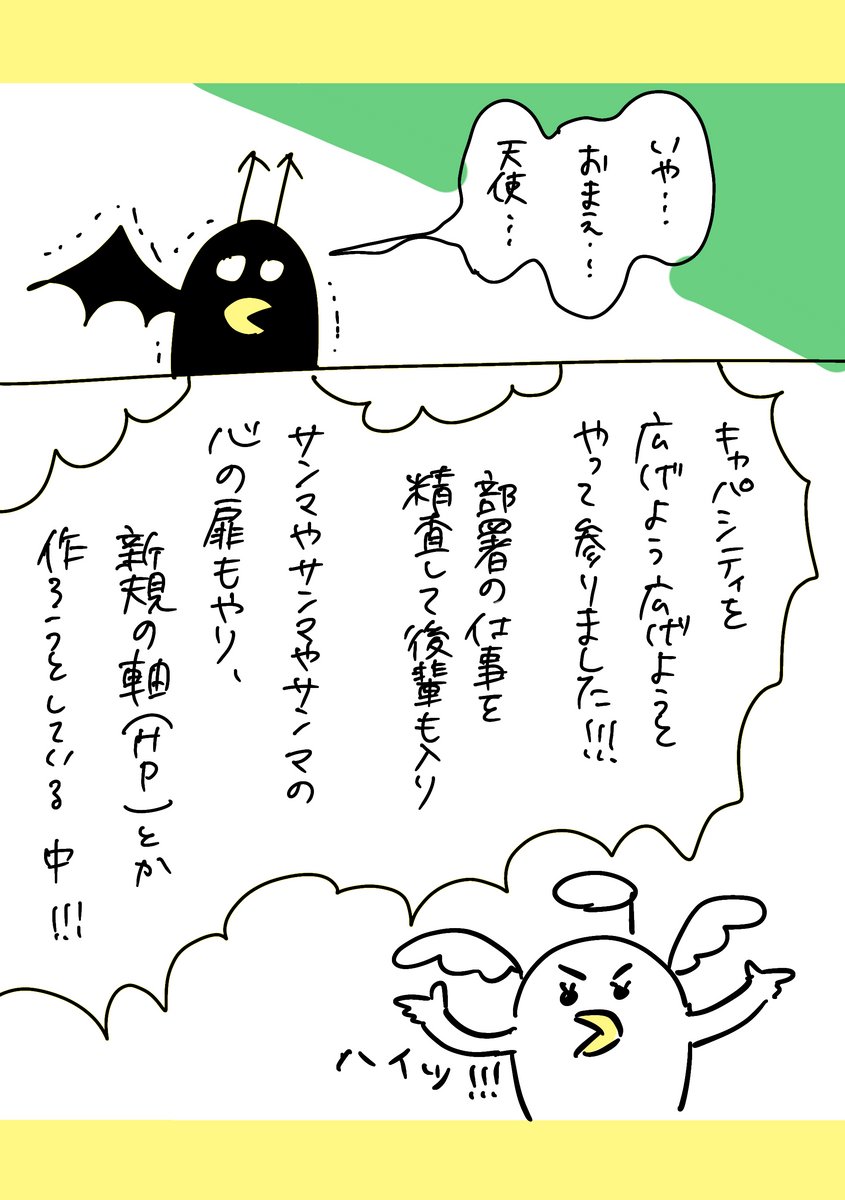 いや…
おまえ…
天使…
キャパシティを
広げよう広げようと
やって参りました!!!
部署の仕事を
精査して後輩も入り
サンマやサンマやサンマの
心の扉もやり、
新規の軸(HP)とか
作ろうとしている中!!!
ハイッ!!!